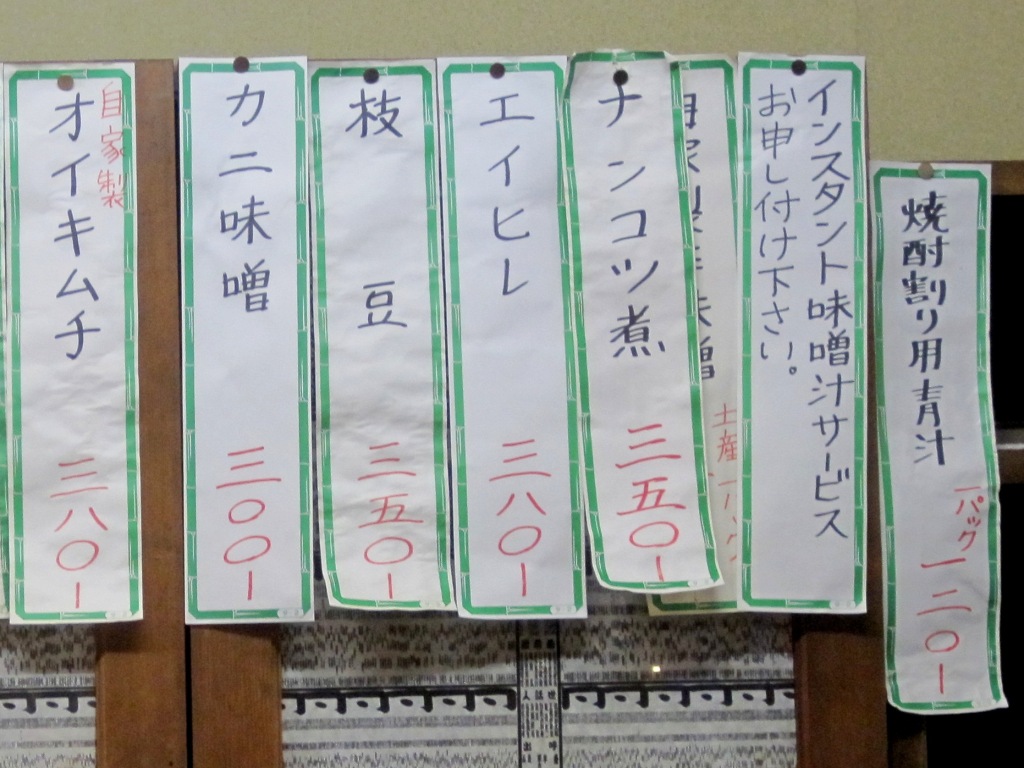 焼酎割り用青汁
一パック
一二〇-
インスタント味噌汁サービス
お申し付け下さい。
土産
ナンコツ煮
三五〇-
エイヒレ
三八〇-
枝豆
三五〇-
カニ味噌
三〇〇-
自家製
オイキムチ
三八〇-